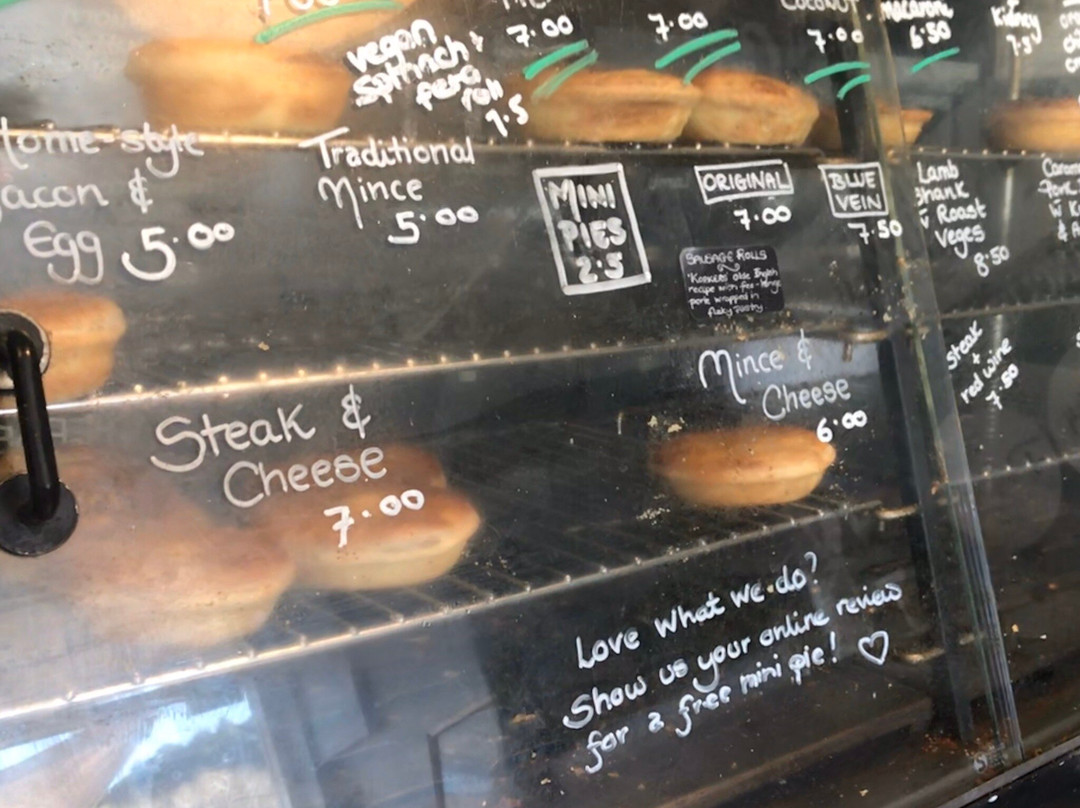 7.00
7.00
Coconut
7.00
macaroni
6.50
Kidney
7.5
vegan
spinach +
feta
roll
7.5
Home-style
Bacon &
Egg 5.00
Traditional
Mince
5.00
MINI
PIES
2.5
ORIGINAL
7.00
BLUE
VEIN
7.50
Lamb
Shank
w Roast
Veges
8.50
SAUSAGE ROLLS
olde English
recipe with free-range
pork wrapped in
flaky pastry
Steak &
Cheese
7.00
Mince &
Cheese
6.00
steak
+
red wine
7.50
Love what we do?
Show us your online review
for a free mini pie! ♡